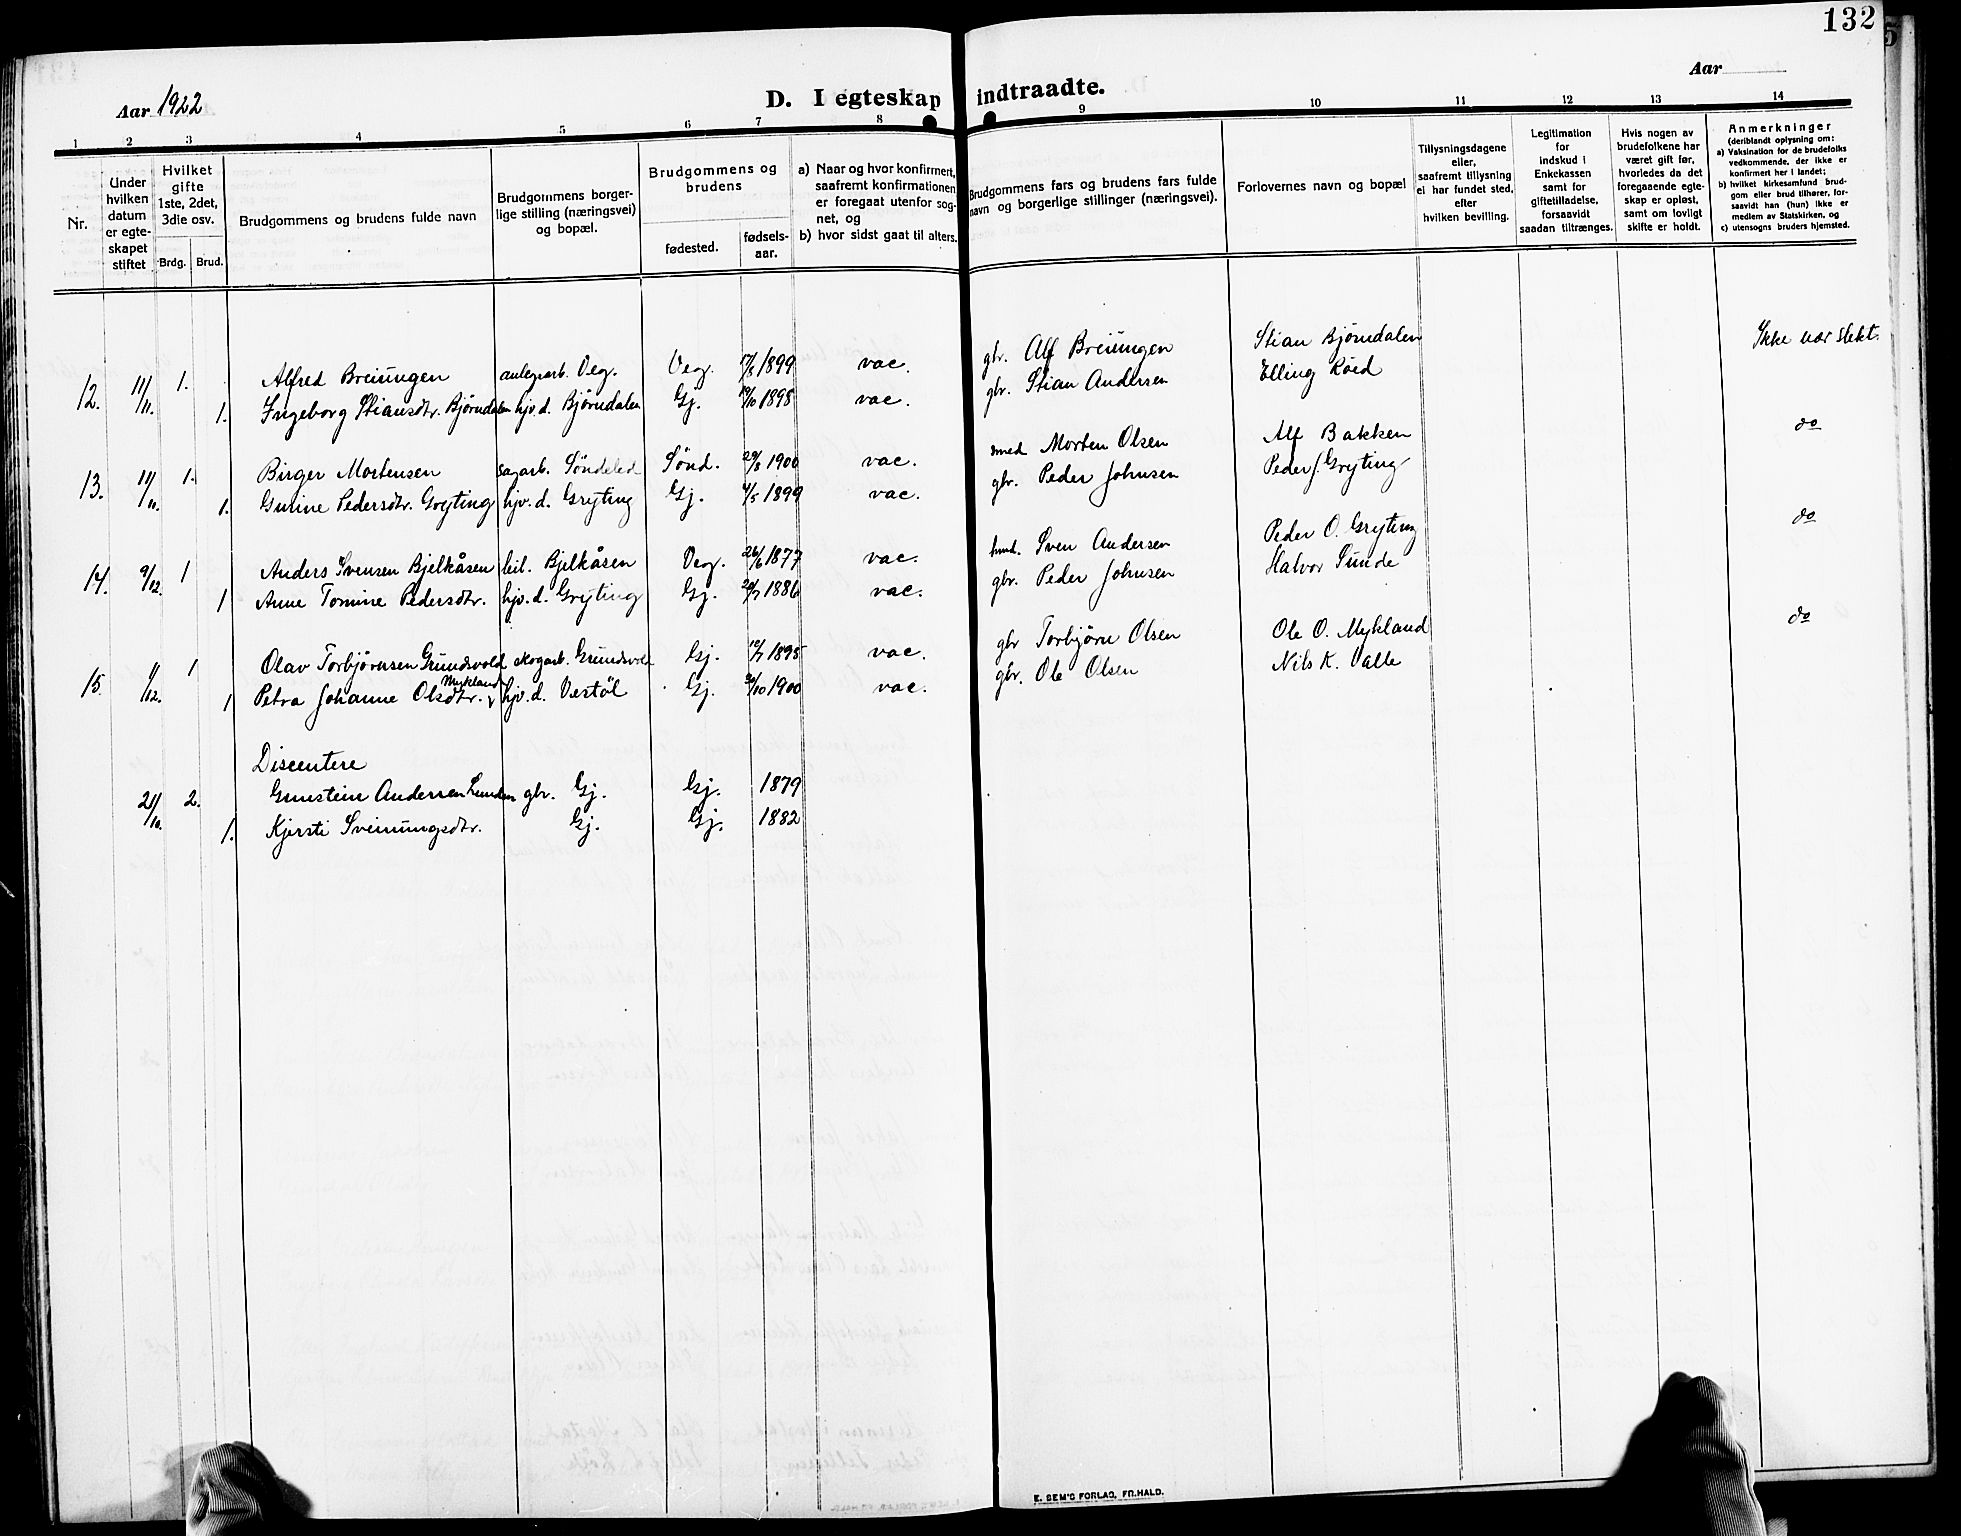 132
Aar 1922
D. I egteskap indtraadte.
Aar
1 2 3 4 5 6 7 8 9 10 11 12 13 14
Nr.
Under hvilken datum er egteskapet stiftet
Hvilket gifte 1ste, 2det, 3die osv.
Brdg. Brud.
Brudgommens og brudens fulde navn
Brudgommens borgerlige stilling (næringsvei) og bopæl.
Brudgommens og brudens
fødested. fødselsaar.
a) Naar og hvor konfirmert, saafremt konfirmationen er foregaat utenfor sognet, og
b) hvor sidst gaat til alters.
Brudgommens fars og brudens fars fulde navn og borgerlige stillinger (næringsvei).
Forlovernes navn og bopæl
Tillysningsdagene eller, saafremt tillysning ei har fundet sted, efter hvilken bevilling.
Legitimation for indskud i Enkekassen samt for giftetilladelse, forsaavidt saadan tiltrænges.
Hvis nogen av brudefolkene har været gift før, hvorledes da det foregaaende egteskap er opløst, samt om lovligt skifte er holdt.
Anmerkninger
(deriblandt oplysning om:
a) Vaksination for de brudefolks vedkommende, der ikke er konfirmert her i landet;
b) hvilket kirkesamfund brudgom eller brud tilhører, forsaavidt han (hun) ikke er medlem av Statskirken, og
c) utensogns bruders hjemsted.
12. 11/11. 1. Alfred Breiungen anlegsarb. Veg. Veg. 17/8 1899 vac. gbr. Alf Breiungen Stian Bjørndalen Ikke nær slekt.
1. Ingeborg Stiansdtr. Bjørndalen hjv. d. Bjørndalen Gj. 19/10 1898 vac. gbr. Stian Andersen Elling Röed
13. 11/11. 1. Birger Mortensen sagarb. Söndeled Sönd. 29/8 1900 vac. smed Morten Olsen Alf Bakken do
1. Gurine Pedersdtr. Gryting hjv. d. Gryting Gj. 4/5 1899 vac. gbr. Peder Johnsen Peder J. Gryting
14. 9/12. 1 Anders Svensen Bjelkåsen leil. Bjelkåsen Veg. 26/6 1877 vac. Sven Andersen Peder O. Gryting do
1 Anne Tomine Pedersdtr. hjv. d. Gryting Gj. 1886 vac. gbr. Peder Johnsen Halvor Sunde
15. /12. 1 Olav Torbjörnsen Grundsvold skogarb. Grundsvold Gj. 12/7 1895 vac. gbr Torbjörn Olsen Ole O. Mykland do
1 Petra Johanne Olsdtr. Mykland hjv. d. Vestöl Gj. 30/10 1900 vac. gbr. Ole Olsen Nils K. Valle
Discentere
21/10. 2. Gunstein Andersen Lunden gbr. Gj. Gj. 1879
1. Kjersti Sveinungsdtr. Gj. Gj. 1882
E. SEM'S FORLAG, FR.HALD.